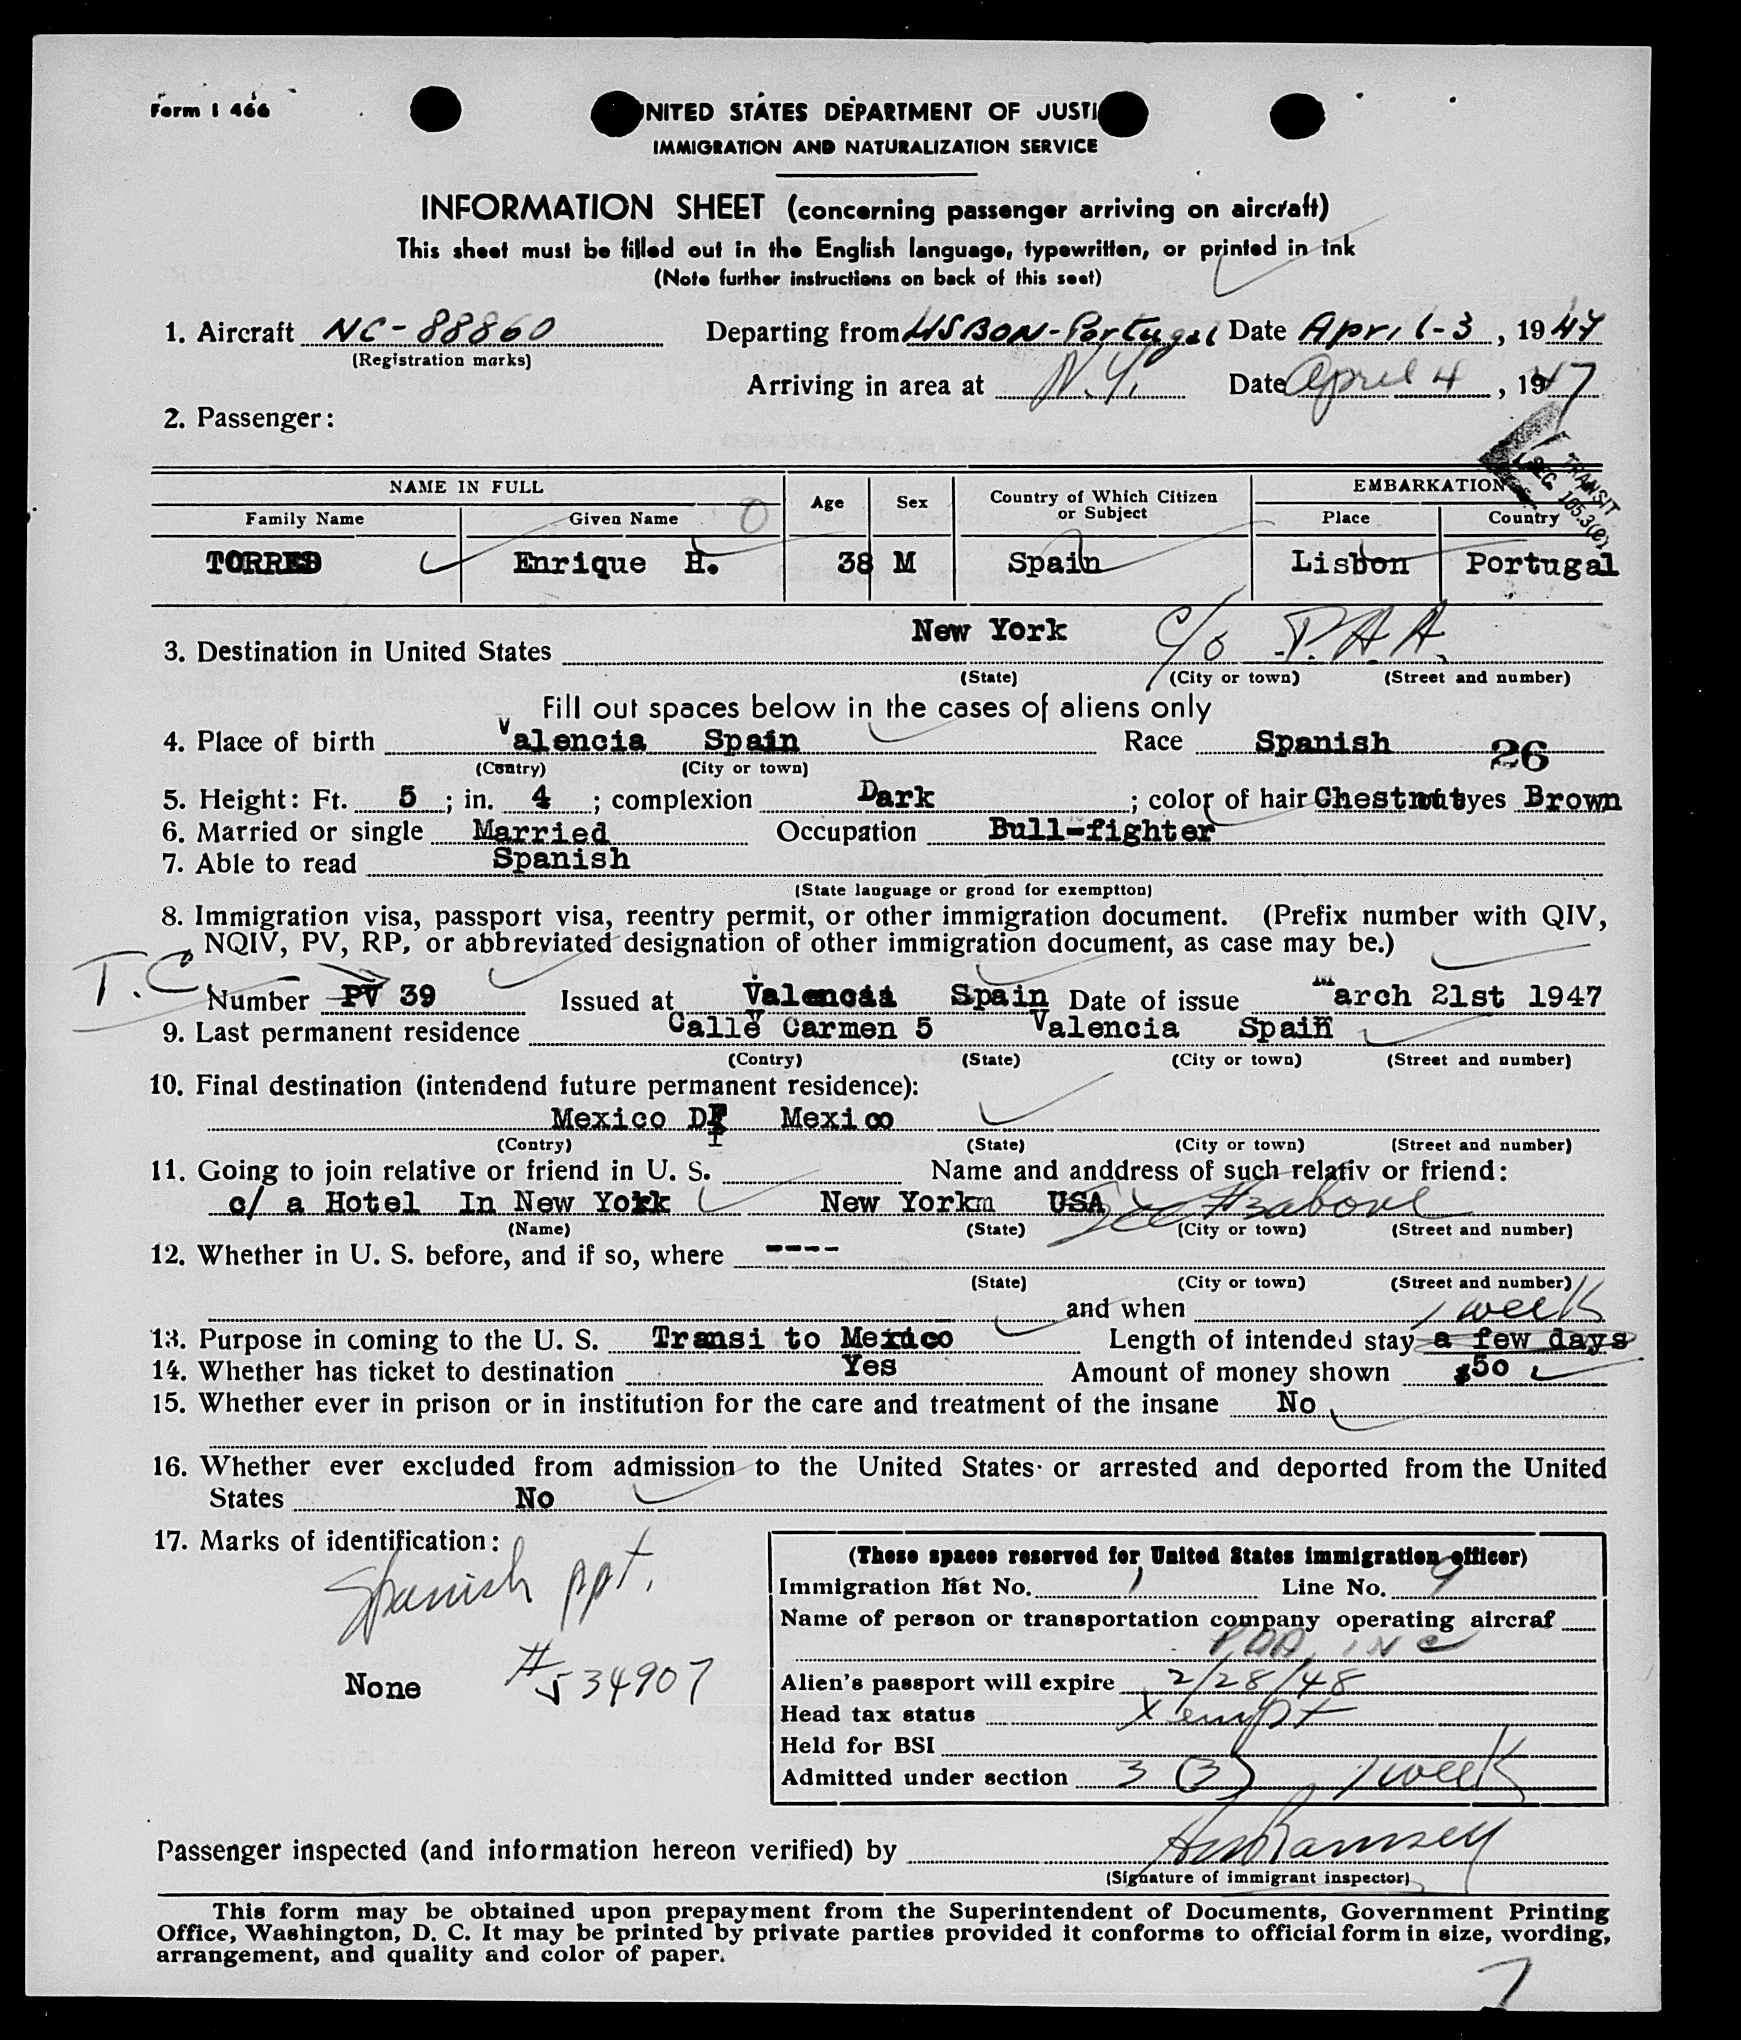 Form I 466
UNITED STATES DEPARTMENT OF JUSTI
IMMIGRATION AND NATURALIZATION SERVICE
INFORMATION SHEET (concerning passenger arriving on aircraft)
This sheet must be filled out in the English language, typewritten, or printed in ink
(Note further instructions on back of this seet)
1. Aircraft NC-88860 Departing from LISBON-Portugal Date April-3, 1947
(Registration marks)
Arriving in area at N.Y. Date April 4, 1947
2. Passenger:
TRANSIT
SEC. 105.3(e)
NAME IN FULL Age Sex Country of Which Citizen or Subject EMBARKATION
Family Name Given Name O Place Country
TORRES Enrique H. 38 M Spain Lisbon Portugal
3. Destination in United States New York c/o P.A.A.
(State) (City or town) (Street and number)
Fill out spaces below in the cases of aliens only
4. Place of birth Valencia Spain Race Spanish 26
(Contry) (City or town)
5. Height: Ft. 5; in. 4; complexion Dark; color of hair Chestnut eyes Brown
6. Married or single Married Occupation Bull-fighter
7. Able to read Spanish
(State language or grond for exemptton)
8. Immigration visa, passport visa, reentry permit, or other immigration document. (Prefix number with QIV,
NQIV, PV, RP, or abbreviated designation of other immigration document, as case may be.)
T.C. Number PV 39 Issued at Valencia Spain Date of issue March 21st 1947
9. Last permanent residence Calle Carmen 5 Valencia Spain
(Contry) (State) (City or town) (Street and number)
10. Final destination (intendend future permanent residence):
Mexico DF Mexico
(Contry) (State) (City or town) (Street and number)
11. Going to join relative or friend in U. S. Name and anddress of such relativ or friend:
c/ a Hotel In New York New Yorkm USA See #3 above
(Name) (State) (City or town) (Street and number)
12. Whether in U. S. before, and if so, where ----
(State) (City or town) (Street and number)
and when
1 week
13. Purpose in coming to the U. S. Transi to Mexico Length of intended stay a few days
14. Whether has ticket to destination Yes Amount of money shown $50
15. Whether ever in prison or in institution for the care and treatment of the insane No
16. Whether ever excluded from admission to the United States or arrested and deported from the United
States No
17. Marks of identification:
Spanish ppt.
None #534907
(These spaces reserved for United States immigration officer)
Immigration list No. 1 Line No. 9
Name of person or transportation company operating aircraf
PAA, INC
Alien's passport will expire 2/28/48
Head tax status Xempt
Held for BSI
Admitted under section 3 (3) 1 week
Passenger inspected (and information hereon verified) by
(Signature of immigrant inspector)
This form may be obtained upon prepayment from the Superintendent of Documents, Government Printing
Office, Washington, D. C. It may be printed by private parties provided it conforms to official form in size, wording,
arrangement, and quality and color of paper.
7